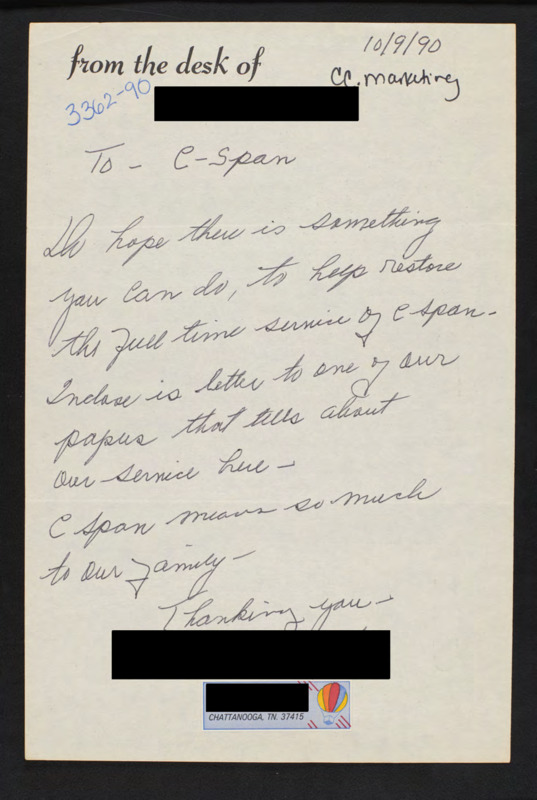 from the desk of
10/9/90
CC. Marketing
3362-90
To - C-Span
Do hope there is something
you can do, to help restore
the full time service of C span -
Inclose is letter to one of our
papers that tells about
our service here -
C span means so much
to our family -
Thanking you -
CHATTANOOGA, TN. 37415